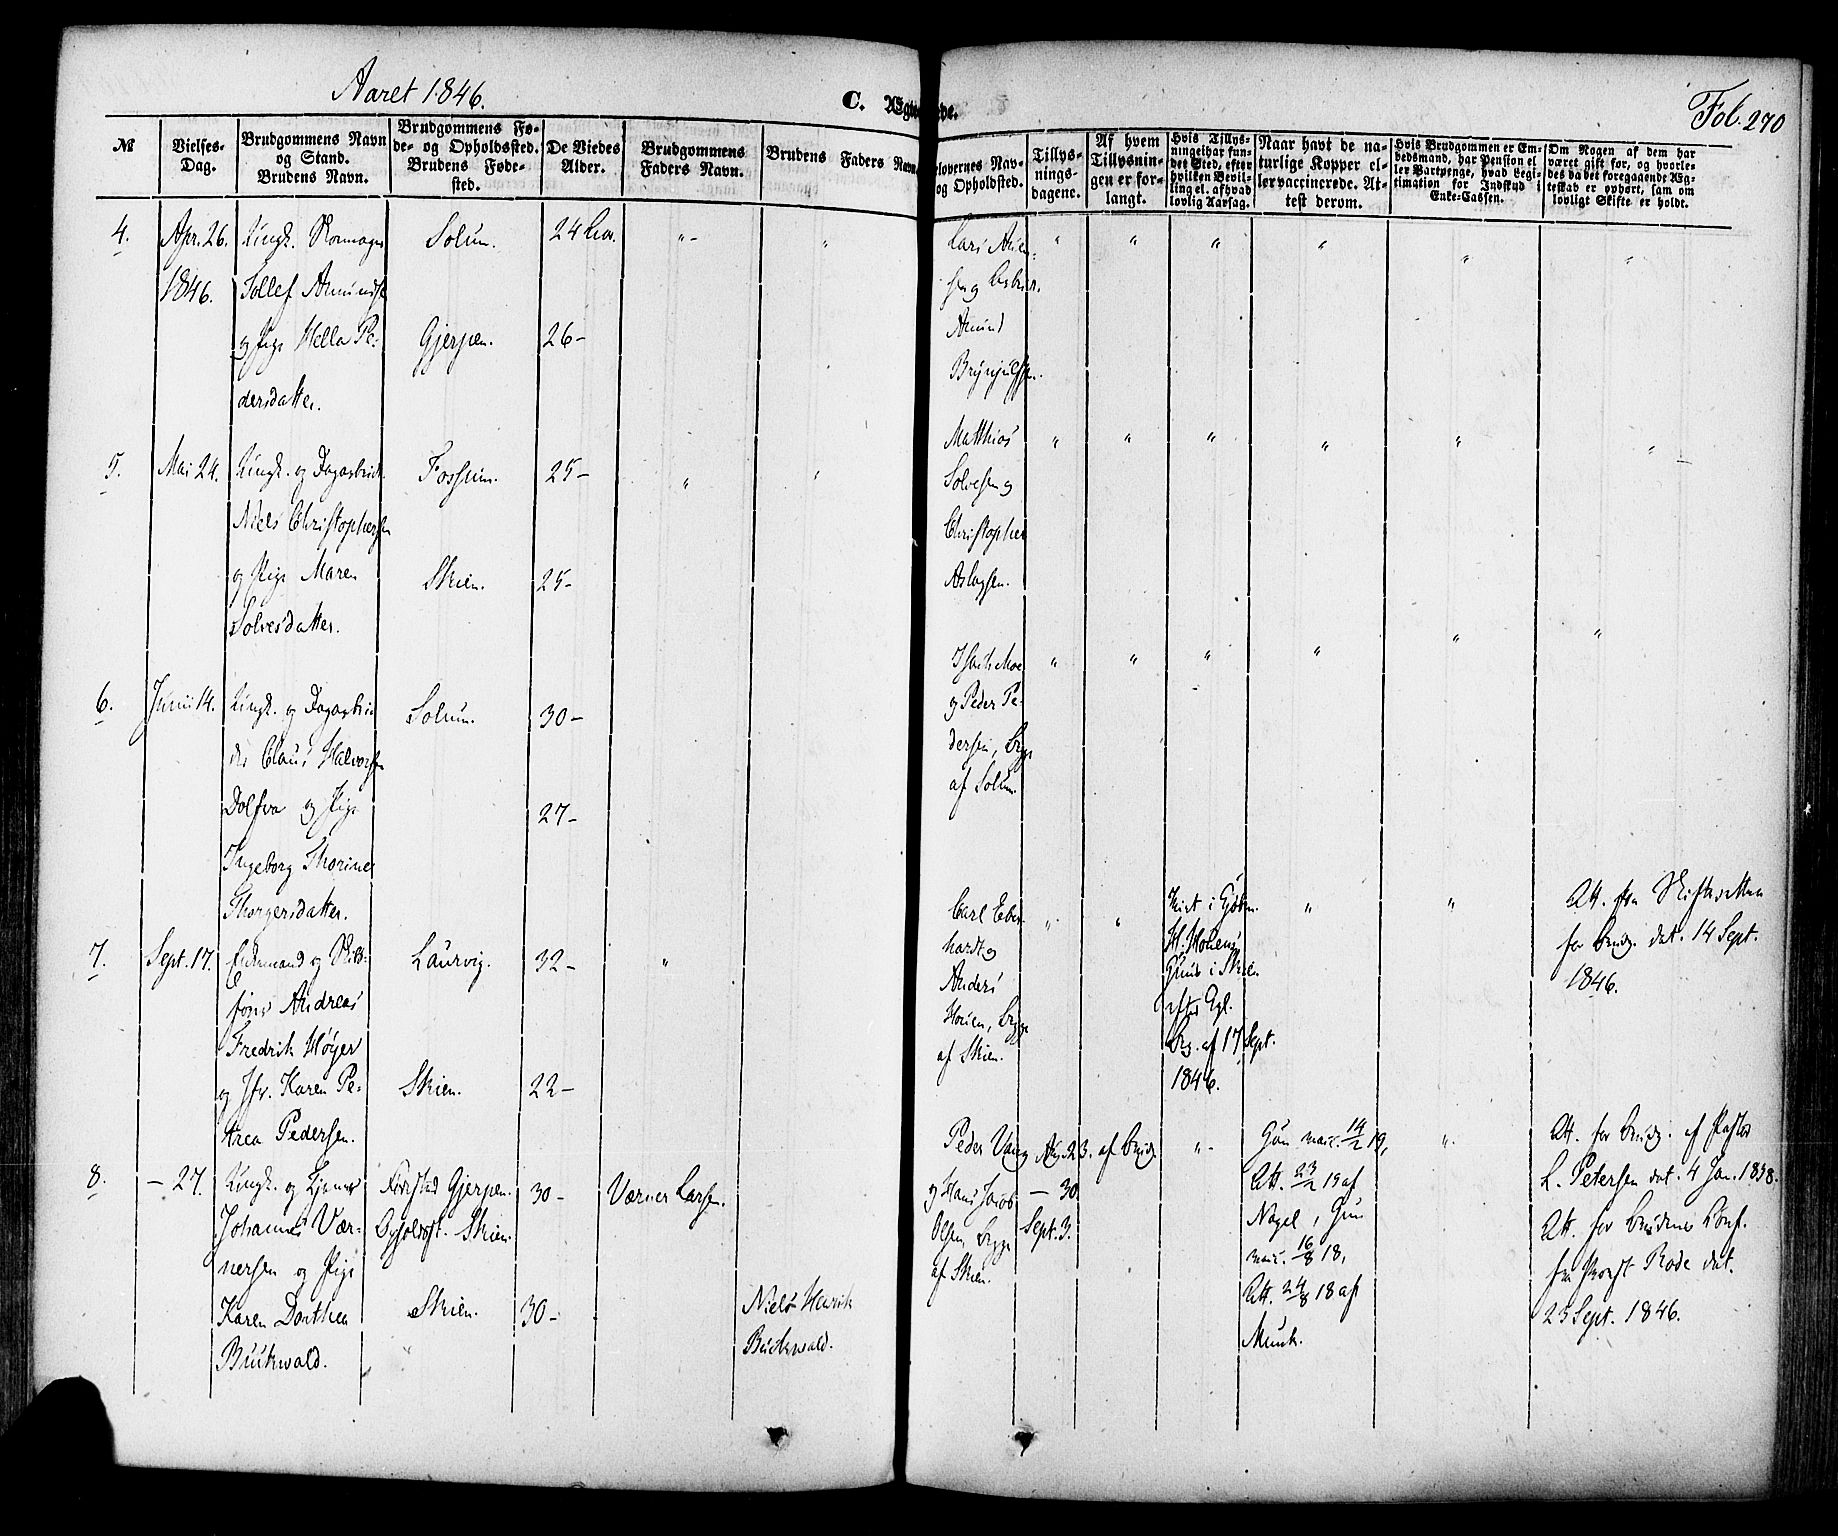 Aaret 1846.
C. Ægte
ede.
Fol. 270
№
Vielses-
Dag.
Brudgommens Navn
og Stand.
Brudens Navn.
Brudgommens Fø-
de- og Opholdssted.
Brudens Føde-
sted.
De Viedes
Alder.
Brudgommens
Faders Navn.
Brudens Faders Navn
elovernes Nav-
og Opholdsted.
Tillys-
nings-
dagene.
Af hvem
Tillysnin-
gen er for-
langt.
Hvis Tillys-
ningel har fun-
det Sted, efter
hvilken Bevil-
ling el. afhvad
lovlig Aarsag.
Naar havt de na-
turlige Kopper el-
ler vaccinerede. At-
test derom.
Hvis Brudgommen er Em-
bedsmand, har Pension el
ler Vartpenge, hvad Legi-
timation for Indskud i
Enke-Cassen.
Om Nogen af dem har
været gift for, og hvorle-
des da det foregaaende Æg-
teskab er ophørt, sam om
lovligt Skifte er holdt.
4.
Apr. 26.
1846.
Ungk.
Sollef Amundss
og Pige Hella Pe-
dersdatter.
Solum.
Gjerpen.
24
26 -
Lars
Amund
5.
Mai 24.
Ungk. og Dagarbeid.
Niels Christophersen
og Pige Maren
Solvesdatter.
Fossum.
Skien.
25 -
25 -
Matthias
Solvesen og
Christopher
Aslagsen.
6.
Junii 14.
Ungk. og Dagarbei
der Claus Halvorsen
Dolfva og Pige
Ingeborg Thorine
Thorgersdatter.
Solum.
30 -
27 -
Moe
og Peder Pe-
dersen, begge
af Solum.
7.
Sept. 17.
Enkemand og Skib-
fører Andreas
Fredrik Høyer
og Jfr. Karen Pe-
trea Pedersen.
Laurvig.
Skien.
32 -
22 -
Carl Eber-
hardt og
Anders
Houen, begge
af Skien.
Viet i
Huus i Skien
efter Kgl.
Bev. af 17 Sept.
1846.
Att. fra Skifteretten
for Brudg. dat. 14 Sept.
1846.
8.
- 27.
Ungk. og Tjener
Johannes Vær-
nersen og Pige
Karen Dorthea
Buckwald.
Gjerpen.
Opholdsst. Skien.
Skien.
30 -
30 -
Værner Larsen.
Niels Henrik
Buckwald.
Peder Vang
og Hans Jacob
Olsen, begge
af Skien.
Aug. 23.
- 30
Sept. 3.
af Brudg.
Hun vacc. 14/2 19,
Att. 23/2 19 af
Nagel, Hun
vacc. 16/8 18,
Att. 24/8 18 af
Munk.
Att. for Brudg. af Pastor
L. Petersen dat. 4 Jan. 1838.
Att. for Brudens Conf.
fra Provst Rode dat.
25 Sept. 1846.